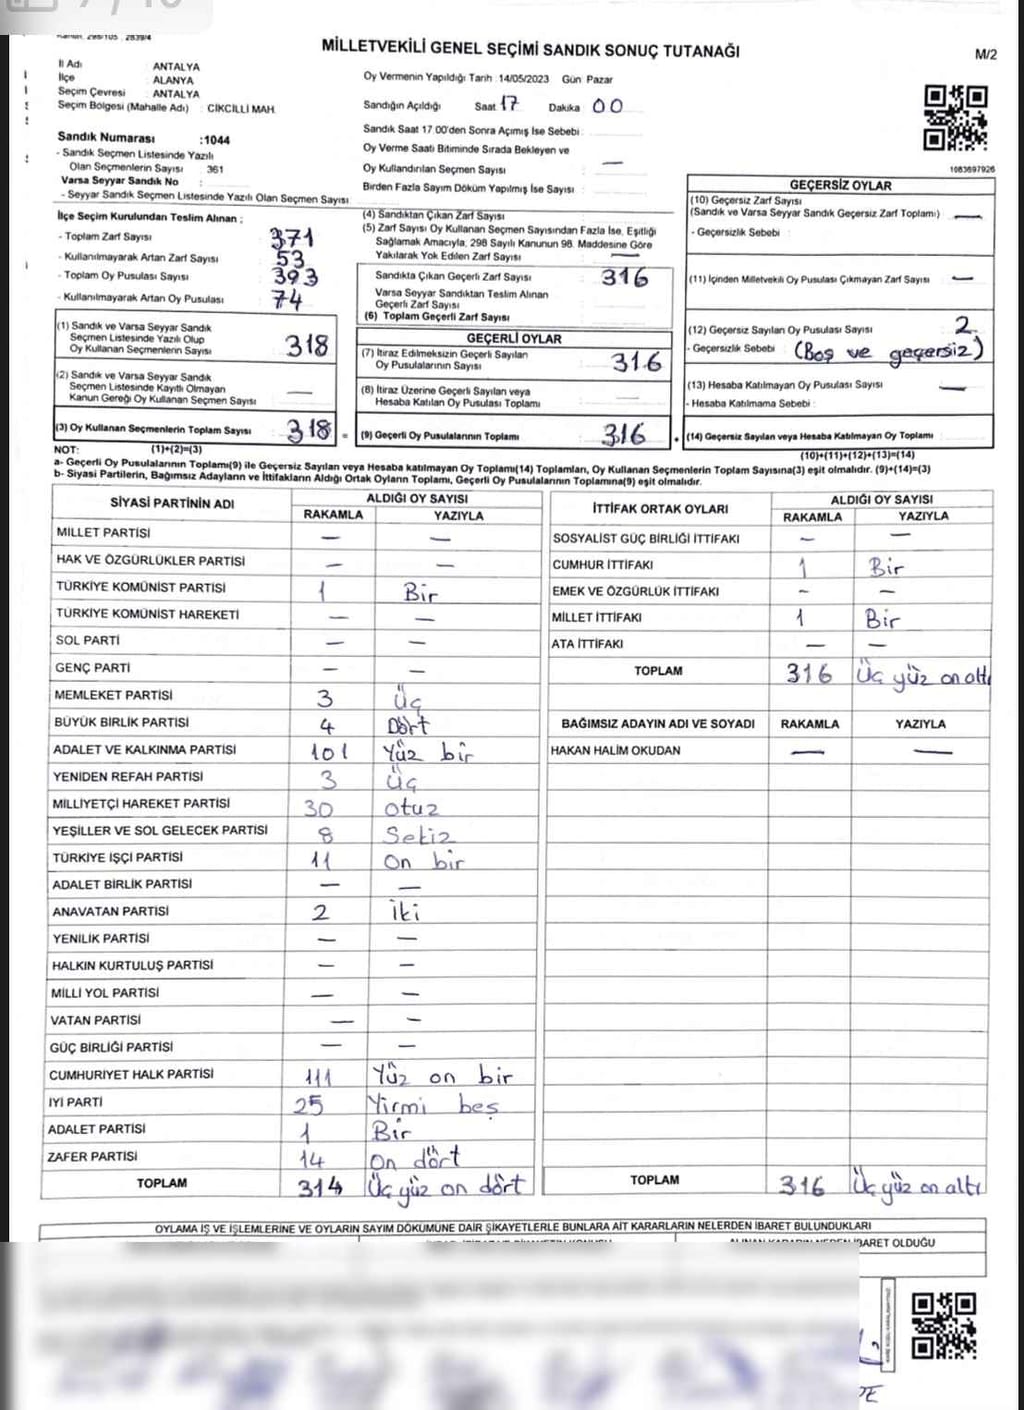 MİLLETVEKİLİ GENEL SEÇİMİ SANDIK SONUÇ TUTANAĞI
M/2
İl Adı : ANTALYA
İlçe : ALANYA
Seçim Çevresi : ANTALYA
Seçim Bölgesi (Mahalle Adı) : CİKCİLLİ MAH.
Sandık Numarası :1044
- Sandık Seçmen Listesinde Yazılı
Olan Seçmenlerin Sayısı : 361
Varsa Seyyar Sandık No :
- Seyyar Sandık Seçmen Listesinde Yazılı Olan Seçmen Sayısı :
Oy Vermenin Yapıldığı Tarih :14/05/2023 Gün: Pazar
Sandığın Açıldığı Saat 17 Dakika 00
Sandık Saat 17.00'den Sonra Açımış İse Sebebi :
Oy Verme Saati Bitiminde Sırada Bekleyen ve
Oy Kullandırılan Seçmen Sayısı : —
Birden Fazla Sayım Döküm Yapılmış İse Sayısı :
1083697926
İlçe Seçim Kurulundan Teslim Alınan :
- Toplam Zarf Sayısı 371
- Kullanılmayarak Artan Zarf Sayısı 53
- Toplam Oy Pusulası Sayısı 393
- Kullanılmayarak Artan Oy Pusulası 74
(1) Sandık ve Varsa Seyyar Sandık
Seçmen Listesinde Yazılı Olup
Oy Kullanan Seçmenlerin Sayısı 318
(2) Sandık ve Varsa Seyyar Sandık
Seçmen Listesinde Kayıtlı Olmayan
Kanun Gereği Oy Kullanan Seçmen Sayısı —
(3) Oy Kullanan Seçmenlerin Toplam Sayısı 318 =
(4) Sandıktan Çıkan Zarf Sayısı
(5) Zarf Sayısı Oy Kullanan Seçmen Sayısından Fazla İse, Eşitliği
Sağlamak Amacıyla, 298 Sayılı Kanunun 98. Maddesine Göre
Yakılarak Yok Edilen Zarf Sayısı —
Sandıkta Çıkan Geçerli Zarf Sayısı 316
Varsa Seyyar Sandıktan Teslim Alınan
Geçerli Zarf Sayısı
(6) Toplam Geçerli Zarf Sayısı
GEÇERLİ OYLAR
(7) İtiraz Edilmeksizin Geçerli Sayılan
Oy Pusulalarının Sayısı 316
(8) İtiraz Üzerine Geçerli Sayılan veya
Hesaba Katılan Oy Pusulası Toplamı —
(9) Geçerli Oy Pusulalarının Toplamı 316 +
GEÇERSİZ OYLAR
(10) Geçersiz Zarf Sayısı
(Sandık ve Varsa Seyyar Sandık Geçersiz Zarf Toplamı) —
- Geçersizlik Sebebi :
(11) İçinden Milletvekili Oy Pusulası Çıkmayan Zarf Sayısı —
(12) Geçersiz Sayılan Oy Pusulası Sayısı 2
- Geçersizlik Sebebi : (Boş ve geçersiz)
(13) Hesaba Katılmayan Oy Pusulası Sayısı —
- Hesaba Katılmama Sebebi :
(14) Geçersiz Sayılan veya Hesaba Katılmayan Oy Toplamı
NOT: (1)+(2)=(3) (10)+(11)+(12)+(13)=(14)
a- Geçerli Oy Pusulalarının Toplamı(9) ile Geçersiz Sayılan veya Hesaba katılmayan Oy Toplamı(14) Toplamları, Oy Kullanan Seçmenlerin Toplam Sayısına(3) eşit olmalıdır. (9)+(14)=(3)
b- Siyasi Partilerin, Bağımsız Adayların ve İttifakların Aldığı Ortak Oyların Toplamı, Geçerli Oy Pusulalarının Toplamına(9) eşit olmalıdır.
SİYASİ PARTİNİN ADI ALDIĞI OY SAYISI
RAKAMLA YAZIYLA
MİLLET PARTİSİ — —
HAK VE ÖZGÜRLÜKLER PARTİSİ — —
TÜRKİYE KOMÜNİST PARTİSİ 1 Bir
TÜRKİYE KOMÜNİST HAREKETİ — —
SOL PARTİ — —
GENÇ PARTİ — —
MEMLEKET PARTİSİ 3 Üç
BÜYÜK BİRLİK PARTİSİ 4 Dört
ADALET VE KALKINMA PARTİSİ 101 Yüz bir
YENİDEN REFAH PARTİSİ 3 Üç
MİLLİYETÇİ HAREKET PARTİSİ 30 otuz
YEŞİLLER VE SOL GELECEK PARTİSİ 8 Sekiz
TÜRKİYE İŞÇİ PARTİSİ 11 On bir
ADALET BİRLİK PARTİSİ — —
ANAVATAN PARTİSİ 2 İki
YENİLİK PARTİSİ — —
HALKIN KURTULUŞ PARTİSİ — —
MİLLİ YOL PARTİSİ — —
VATAN PARTİSİ — —
GÜÇ BİRLİĞİ PARTİSİ — —
CUMHURİYET HALK PARTİSİ 111 Yüz on bir
İYİ PARTİ 25 Yirmi beş
ADALET PARTİSİ 1 Bir
ZAFER PARTİSİ 14 On dört
TOPLAM 314 Üç yüz on dört
İTTİFAK ORTAK OYLARI ALDIĞI OY SAYISI
RAKAMLA YAZIYLA
SOSYALİST GÜÇ BİRLİĞİ İTTİFAKI — —
CUMHUR İTTİFAKI 1 Bir
EMEK VE ÖZGÜRLÜK İTTİFAKI — —
MİLLET İTTİFAKI 1 Bir
ATA İTTİFAKI — —
TOPLAM 316 Üç yüz on altı
BAĞIMSIZ ADAYIN ADI VE SOYADI RAKAMLA YAZIYLA
HAKAN HALİM OKUDAN — —
TOPLAM 316 Üç yüz on altı
OYLAMA İŞ VE İŞLEMLERİNE VE OYLARIN SAYIM DÖKÜMÜNE DAİR ŞİKAYETLERLE BUNLARA AİT KARARLARIN NELERDEN İBARET BULUNDUKLARI
İBARET OLDUĞU